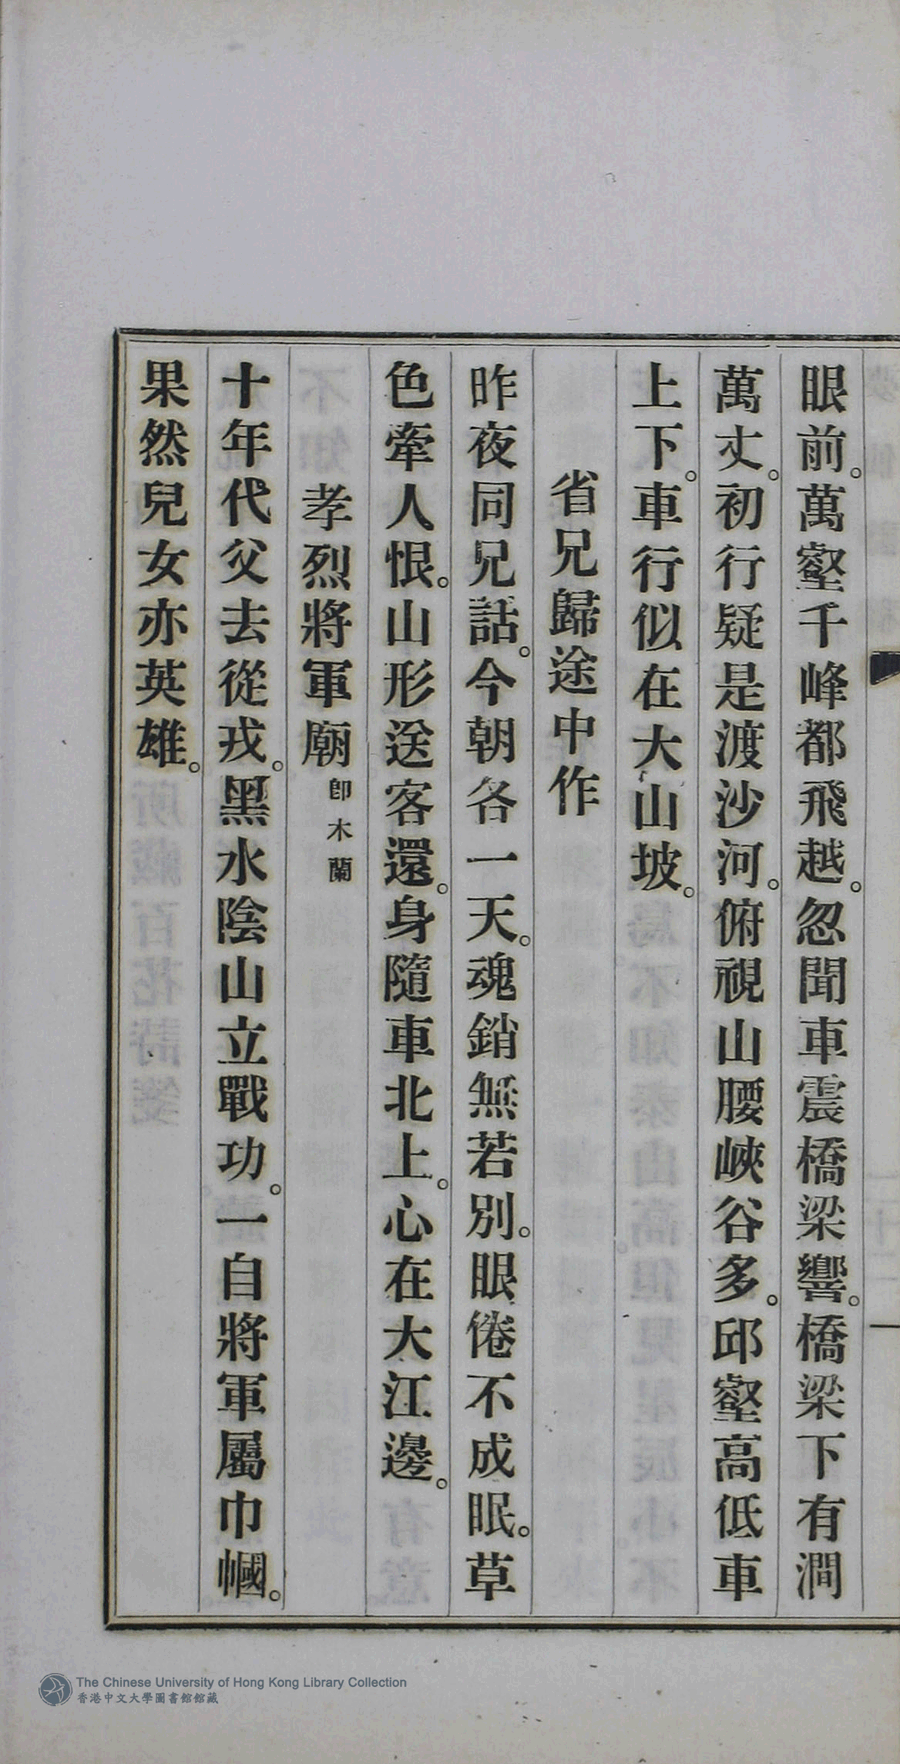 眼前。萬壑千峰都飛越。忽聞車震橋梁響。橋梁下有澗
萬丈。初行疑是渡沙河。俯視山腰峽谷多。邱壑高低車
上下。車行似在大山坡。
省兄歸途中作
昨夜同兄話。今朝各一天。魂銷無若別。眼倦不成眠。草
色牽人恨。山形送客還。身隨車北上。心在大江邊。
孝烈將軍廟 卽木蘭
十年代父去從戎。黑水陰山立戰功。一自將軍屬巾幗。
果然兒女亦英雄。
The Chinese University of Hong Kong Library Collection
香港中文大學圖書館館藏